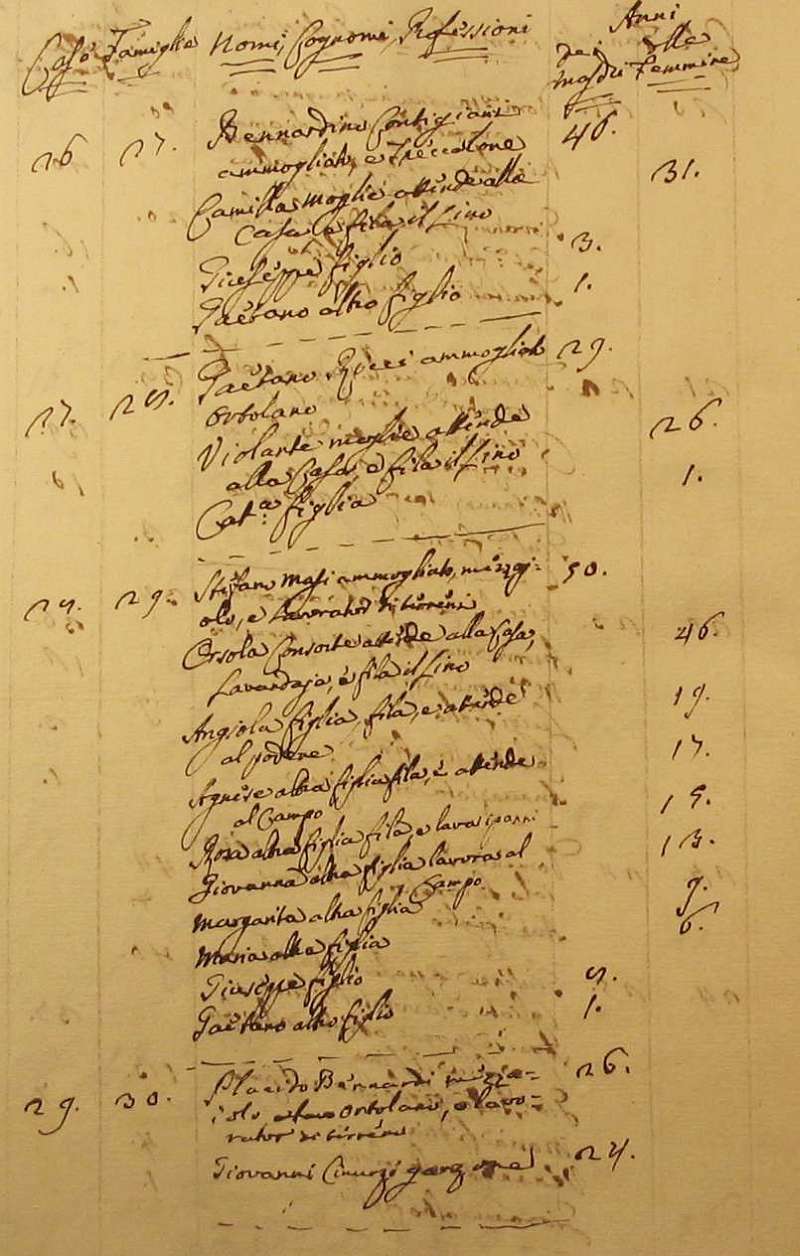 Anni
Case Famiglie Nomi, Cognomi, Professioni dei delle
Maschi Femmine
26 27. Bernardino Contigiani 46.
ammogliato, e Treccolone
Camilla moglie attende alla 31.
Casa e fila il Lino
Giuseppe figlio 3.
Gaetano altro figlio 1.
27. 28. Gaetano Ricci ammogliato 29.
ortolano
Violante moglie attende 26.
alla Casa, e fila il Lino
Cat.a figlia 1.
28. 29. Stefano Masi ammogliato, mezzaj- 50.
olo, e lavorator di terreni
Orsola Consorte attende alla Casa, 46.
Lavandaja, e fila il Lino
Angiola figlia, fila, e attende 19.
al podere
Agnese altra figlia fila, e attende 17.
al Campo
Rosa altra figlia fila, e lava i panni 15.
Giovanna altra figlia lavora al 13.
Campo
Margarita altra figlia 9.
Maria altra figlia 6.
Giuseppe figlio 8.
Gaetano altro figlio 1.
29. 30. Placido Bernardi mezza- 26.
iolo ortolano, e lavo-
rator di terreni
Giovanni garzone 24.